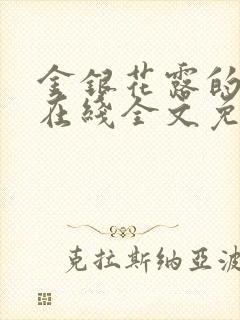 金银花露的
在綫全文免
克拉斯纳亚波